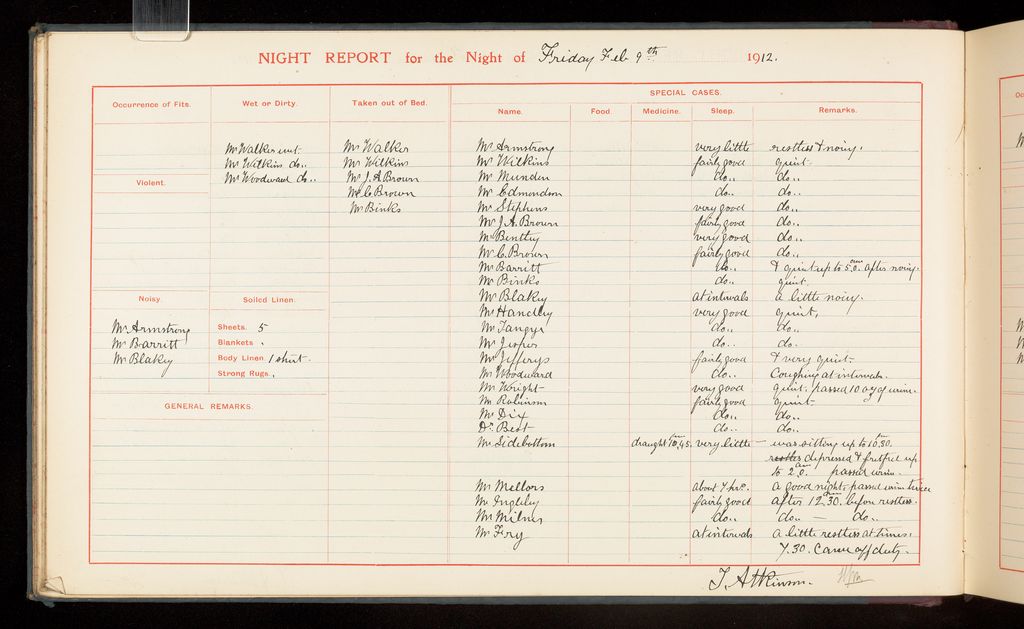 NIGHT REPORT for the Night of Friday Feb 9th 1912.
Occurrence of Fits.
Wet or Dirty.
Taken out of Bed.
SPECIAL CASES.
Name. Food. Medicine. Sleep. Remarks.
Mr Walker wet
Mr Wilkins do..
Mr Woodward do..
Mr Walker
Mr Wilkins
Mr J. A Brown
Mr C Brown
Mr Binks
Violent.
Noisy.
Mr Armstrong
Mr Barritt
Mr Blakey
Soiled Linen.
Sheets. 5
Blankets .
Body Linen 1 shirt.
Strong Rugs .
GENERAL REMARKS.
Mr Armstrong very little restless & noisy.
Mr Wilkins fairly good quiet.
Mr Munden do.. do..
Mr Edmondson do.. do..
Mr Stephens very good do..
Mr J. A. Brown fairly good do..
Mr Bentley very good do..
Mr C. Brown fairly good do..
Mr Barritt do.. & quiet up to 5.0. am after noisy.
Mr Binks do.. quiet.
Mr Blakey at intervals a little noisy.
Mr Handley very good quiet.
Mr Tangye do.. do..
Mr Jesper do.. do.
Mr Jefferys fairly good & very quiet.
Mr Woodward do.. Coughing at intervals.
Mr Wright very good quiet. passed 10 oz of urine.
Mr Robinson fairly good quiet.
Mr Dix do.. do..
Dr Best do.. do..
Mr Sidebottom draught 10.45. very little - was sitting up to 10.30.
restles depressed & fretful up
to 2.0. am passed urine.
Mr Mellors about 7 hrs. a good night. passed urine twice
Mr Ingleby fairly good after 12.30. before restless.
Mr Milnes do.. do.. — do..
Mr Fry at intervals a little restless at times.
7.30. Came off duty.
T. Atkinson.